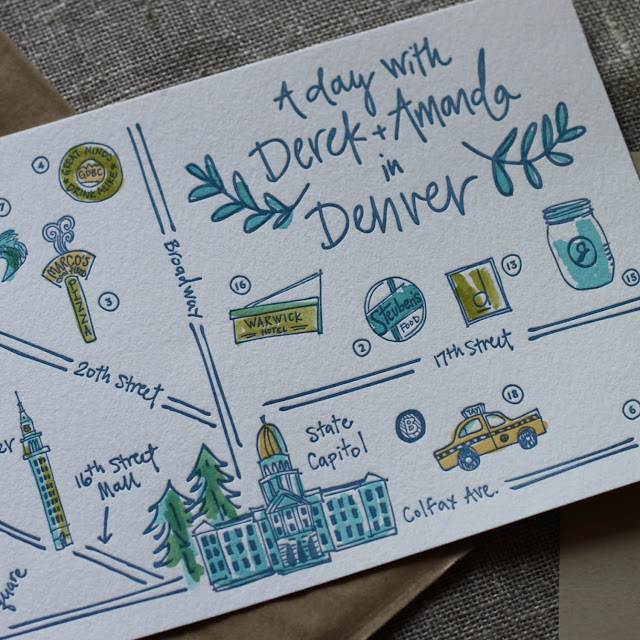 A day with
Derek + Amanda
in
Denver
4
GREAT MINDS
GPBC
DRINKING ALIKE
7
MARCO'S
PIZZA
3
Broadway
20th Street
16
WARWICK
HOTEL
Steuben's
FOOD
2
13
15
17th Street
16th Street
Mall
State
Capitol
B
TAXI
18
6
Colfax Ave.